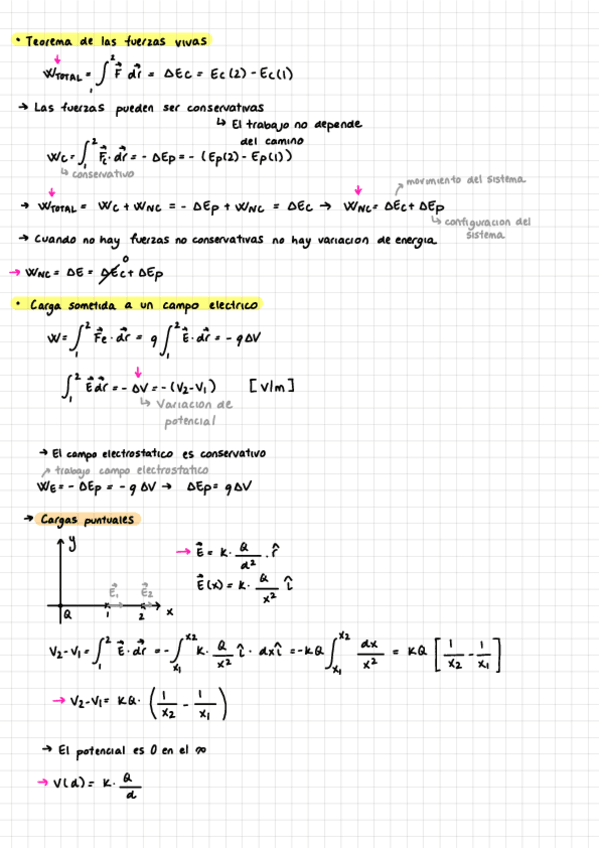 • Teorema de las fuerzas vivas
W_TOTAL = ∫₁² F⃗ dr⃗ = ΔEc = Ec(2) - Ec(1)
→ Las fuerzas pueden ser conservativas
↳ El trabajo no depende
del camino
Wc = ∫₁² F⃗c · dr⃗ = - ΔEp = - (Ep(2) - Ep(1))
↳ conservativo
movimiento del sistema
→ W_TOTAL = Wc + W_NC = - ΔEp + W_NC = ΔEc → W_NC = ΔEc + ΔEp
↳ configuracion del
sistema
→ Cuando no hay fuerzas no conservativas no hay variacion de energia
0
→ W_NC = ΔE = ΔEc + ΔEp
• Carga sometida a un campo electrico
W = ∫₁² F⃗e · dr⃗ = q ∫₁² E⃗ · dr⃗ = - qΔV
∫₁² E⃗ dr⃗ = - ΔV = - (V₂-V₁) [V/m]
↳ Variacion de
potencial
→ El campo electrostatico es conservativo
trabajo campo electrostatico
W_E = - ΔEp = - q ΔV → ΔEp = qΔV
→ Cargas puntuales
y
→ E⃗ = K · Q/d² · r̂
E⃗(x) = K · Q/x² î
E⃗₁ E⃗₂
Q 1 2 x
V₂-V₁ = ∫₁² E⃗ · dr⃗ = - ∫_x₁^x₂ K · Q/x² î · dx î = -KQ ∫_x₁^x₂ dx/x² = KQ [1/x₂ - 1/x₁]
→ V₂-V₁ = KQ · (1/x₂ - 1/x₁)
→ El potencial es 0 en el ∞
→ V(d) = K · Q/d